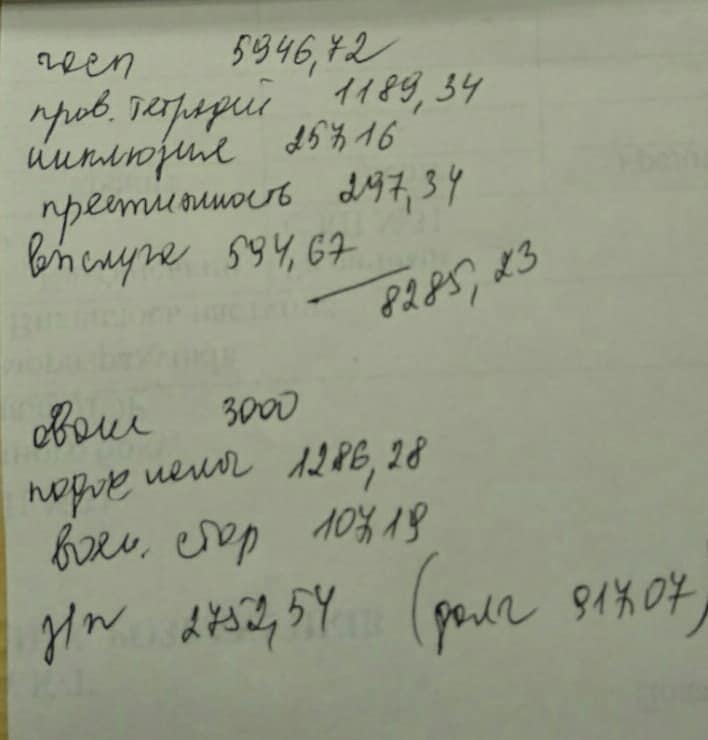 часы 5946,72
пров. тетрадей 1189,34
инклюзия 257,16
престижность 297,34
выслуга 594,67
8285,23
аванс 3000
подох налог 1286,28
воен. сбор 107,19
з/п 2752,54 (долг 917,07)